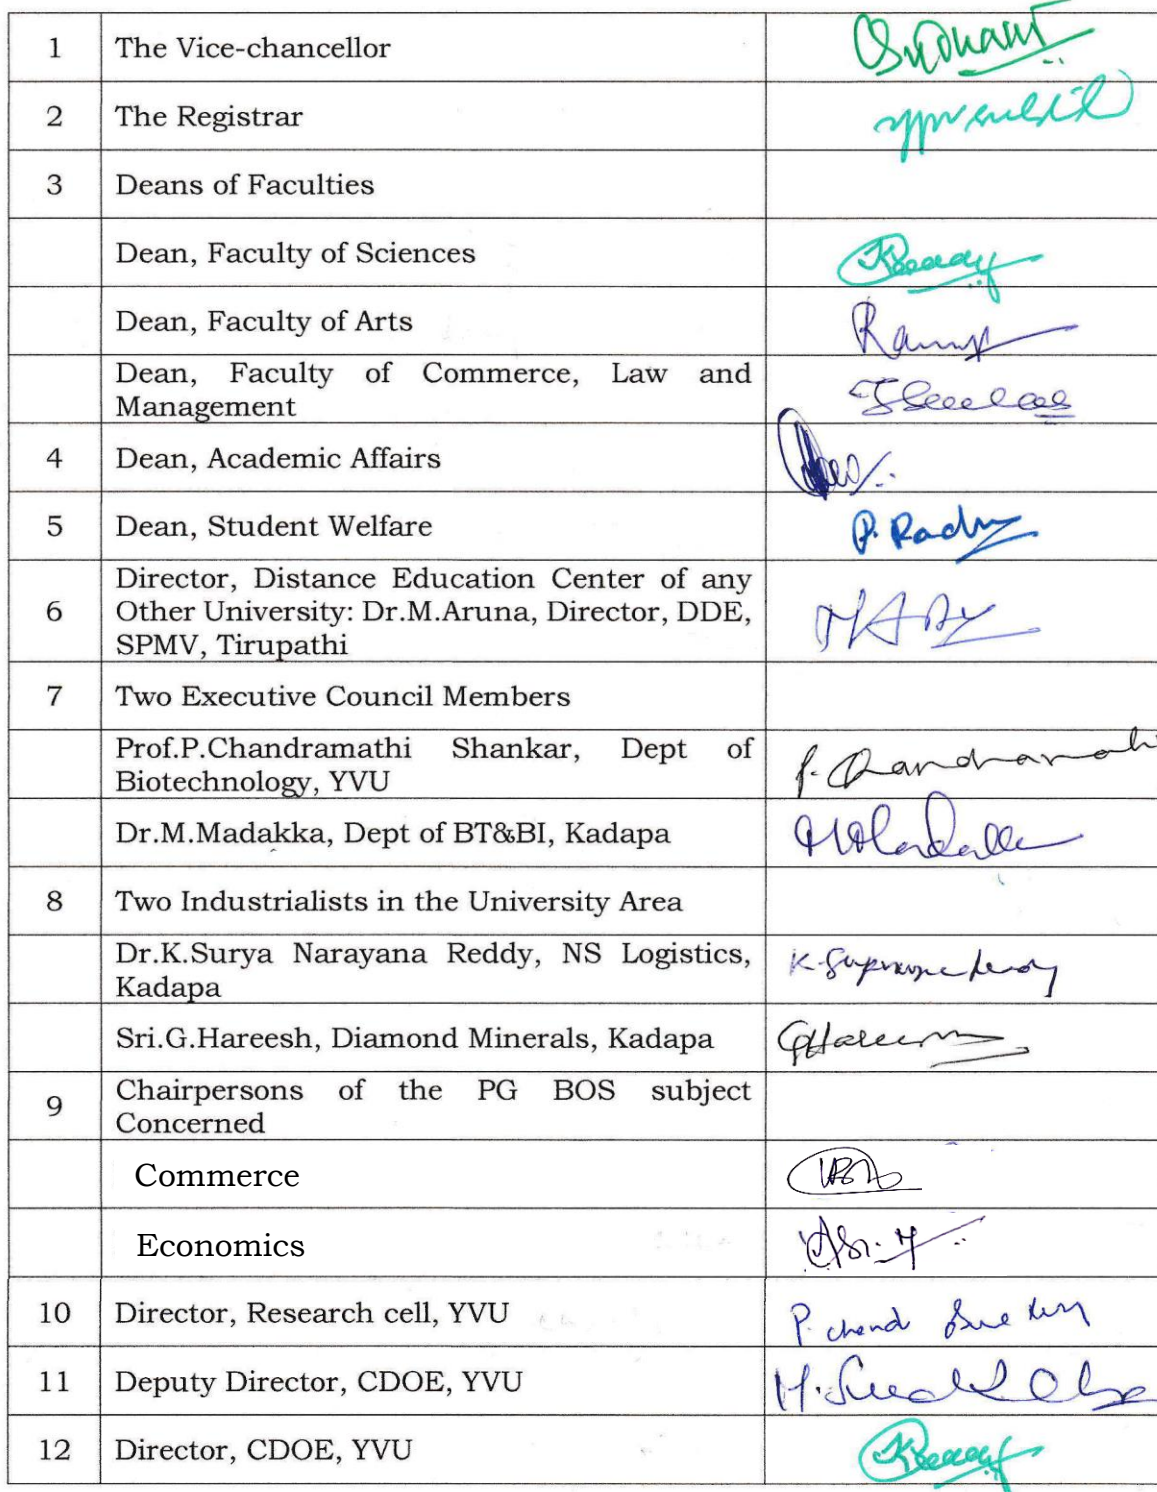 1 The Vice-chancellor
2 The Registrar
3 Deans of Faculties
Dean, Faculty of Sciences
Dean, Faculty of Arts
Dean, Faculty of Commerce, Law and
Management
4 Dean, Academic Affairs
5 Dean, Student Welfare P. Radhy
6 Director, Distance Education Center of any
Other University: Dr.M.Aruna, Director, DDE,
SPMV, Tirupathi
7 Two Executive Council Members
Prof.P.Chandramathi Shankar, Dept of
Biotechnology, YVU
Dr.M.Madakka, Dept of BT&BI, Kadapa
8 Two Industrialists in the University Area
Dr.K.Surya Narayana Reddy, NS Logistics,
Kadapa
Sri.G.Hareesh, Diamond Minerals, Kadapa
9 Chairpersons of the PG BOS subject
Concerned
Commerce
Economics
10 Director, Research cell, YVU P. chand
11 Deputy Director, CDOE, YVU
12 Director, CDOE, YVU